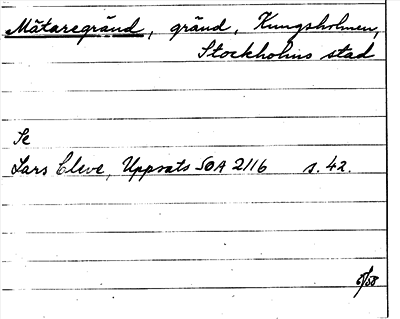 Mätaregränd, gränd, Kungsholmen,
Stockholms stad
Se
Lars Cleve, Uppsats SOA 2116 s. 42.